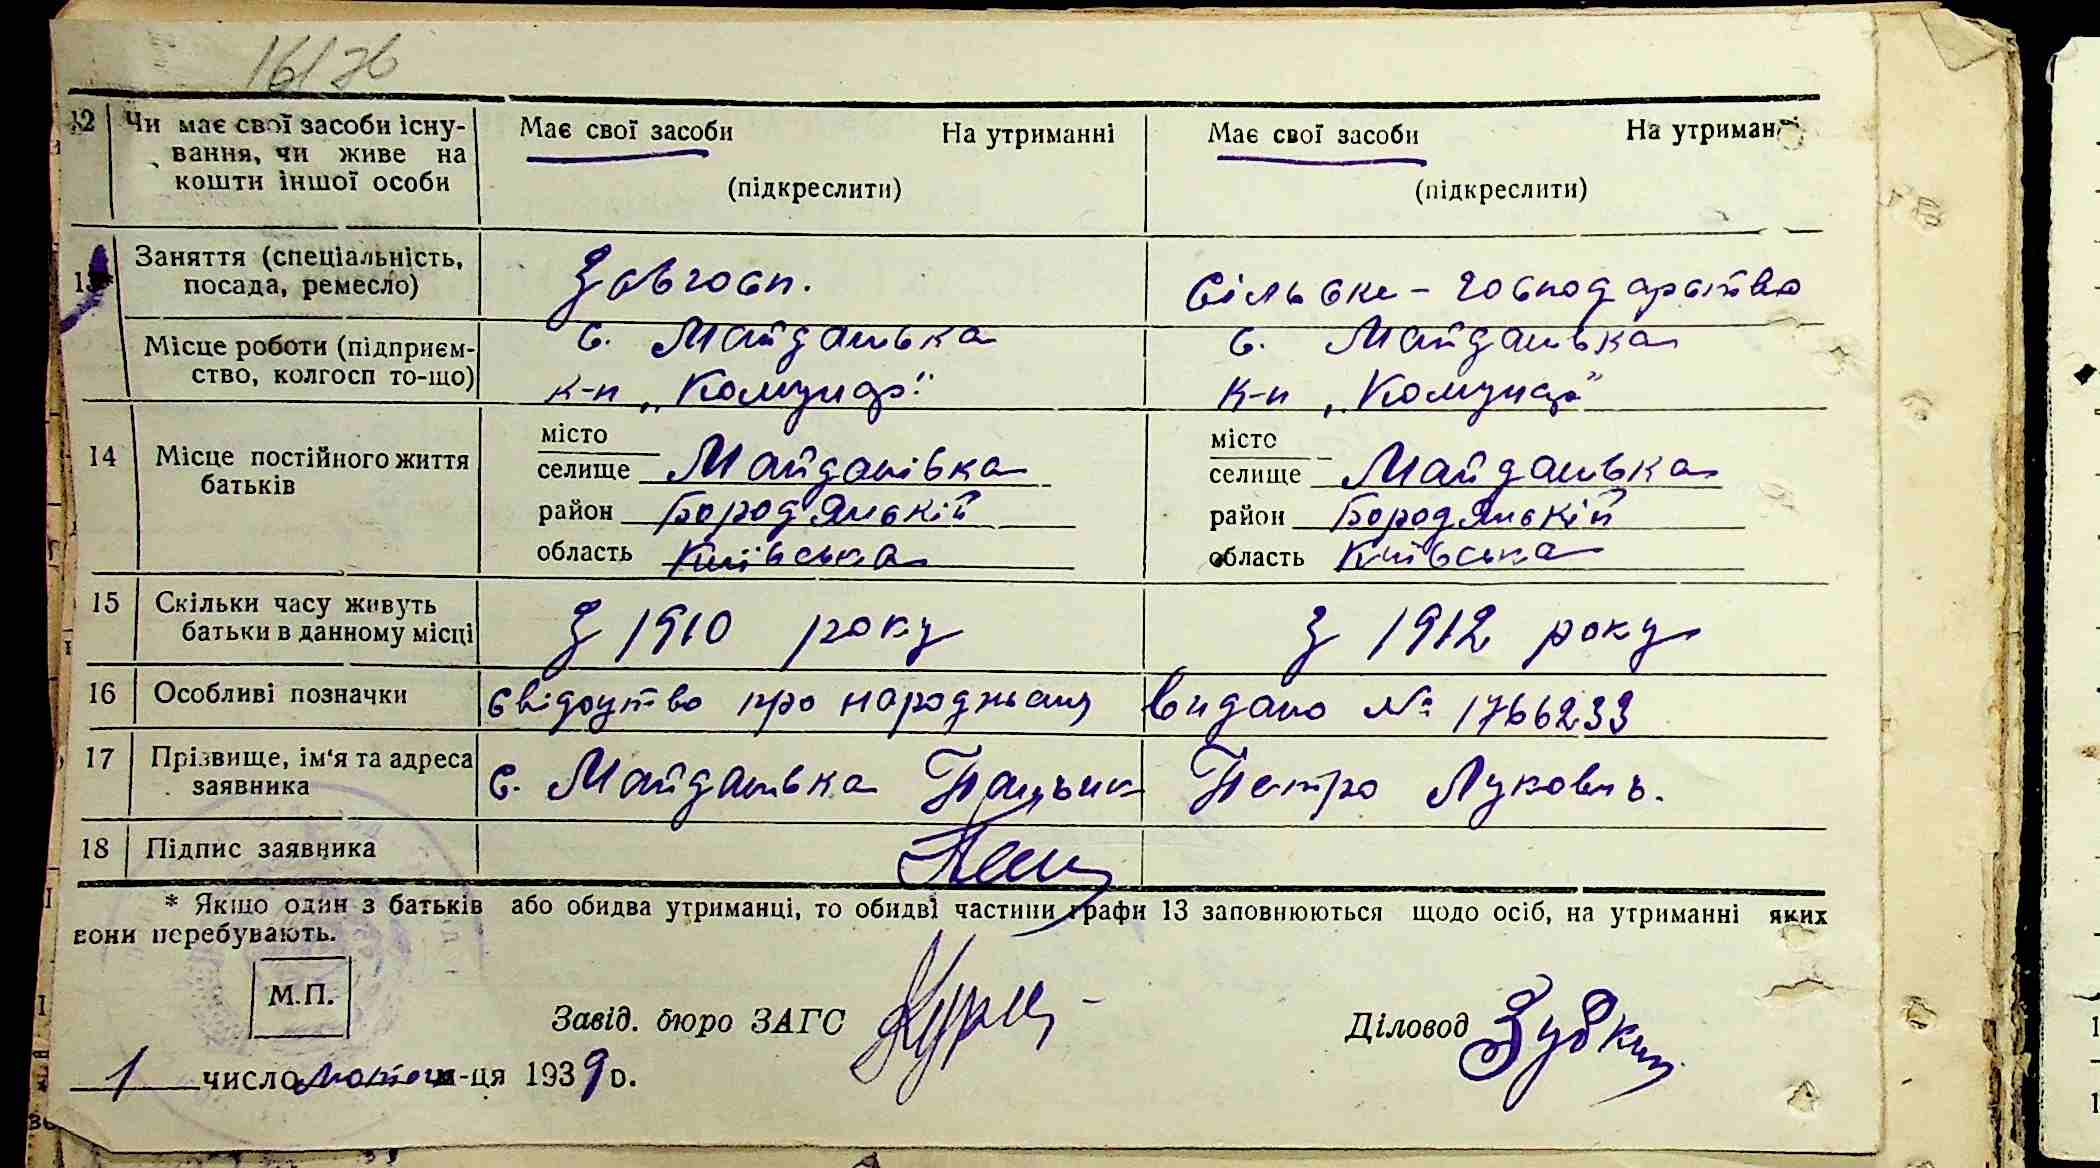 16/76
12 Чи має свої засоби існу- Має свої засоби На утриманні Має свої засоби На утриманні
вання, чи живе на
кошти іншої особи (підкреслити) (підкреслити)
13* Заняття (спеціальність, Завгосп. Сільське-господарство
посада, ремесло)
Місце роботи (підприєм- с. Майданівка с. Майданівка
ство, колгосп то-що) к-п „Комунар" к-п „Комунар"
14 Місце постійного життя батьків
місто місто
селище Майданівка селище Майданівка
район Бородянській район Бородянькій
область Київська область Київська
15 Скільки часу живуть З 1910 року З 1912 року
батьки в данному місці
16 Особливі позначки свідоцтво про народження видано № 1766233
17 Прізвище, ім'я та адреса с. Майданівка Петро Лукович.
заявника
18 Підпис заявника
* Якщо один з батьків або обидва утриманці, то обидві частини графи 13 заповнюються щодо осіб, на утриманні яких
вони перебувають.
М.П.
Завід. бюро ЗАГС Діловод
1 число лютого м-ця 1939 р.